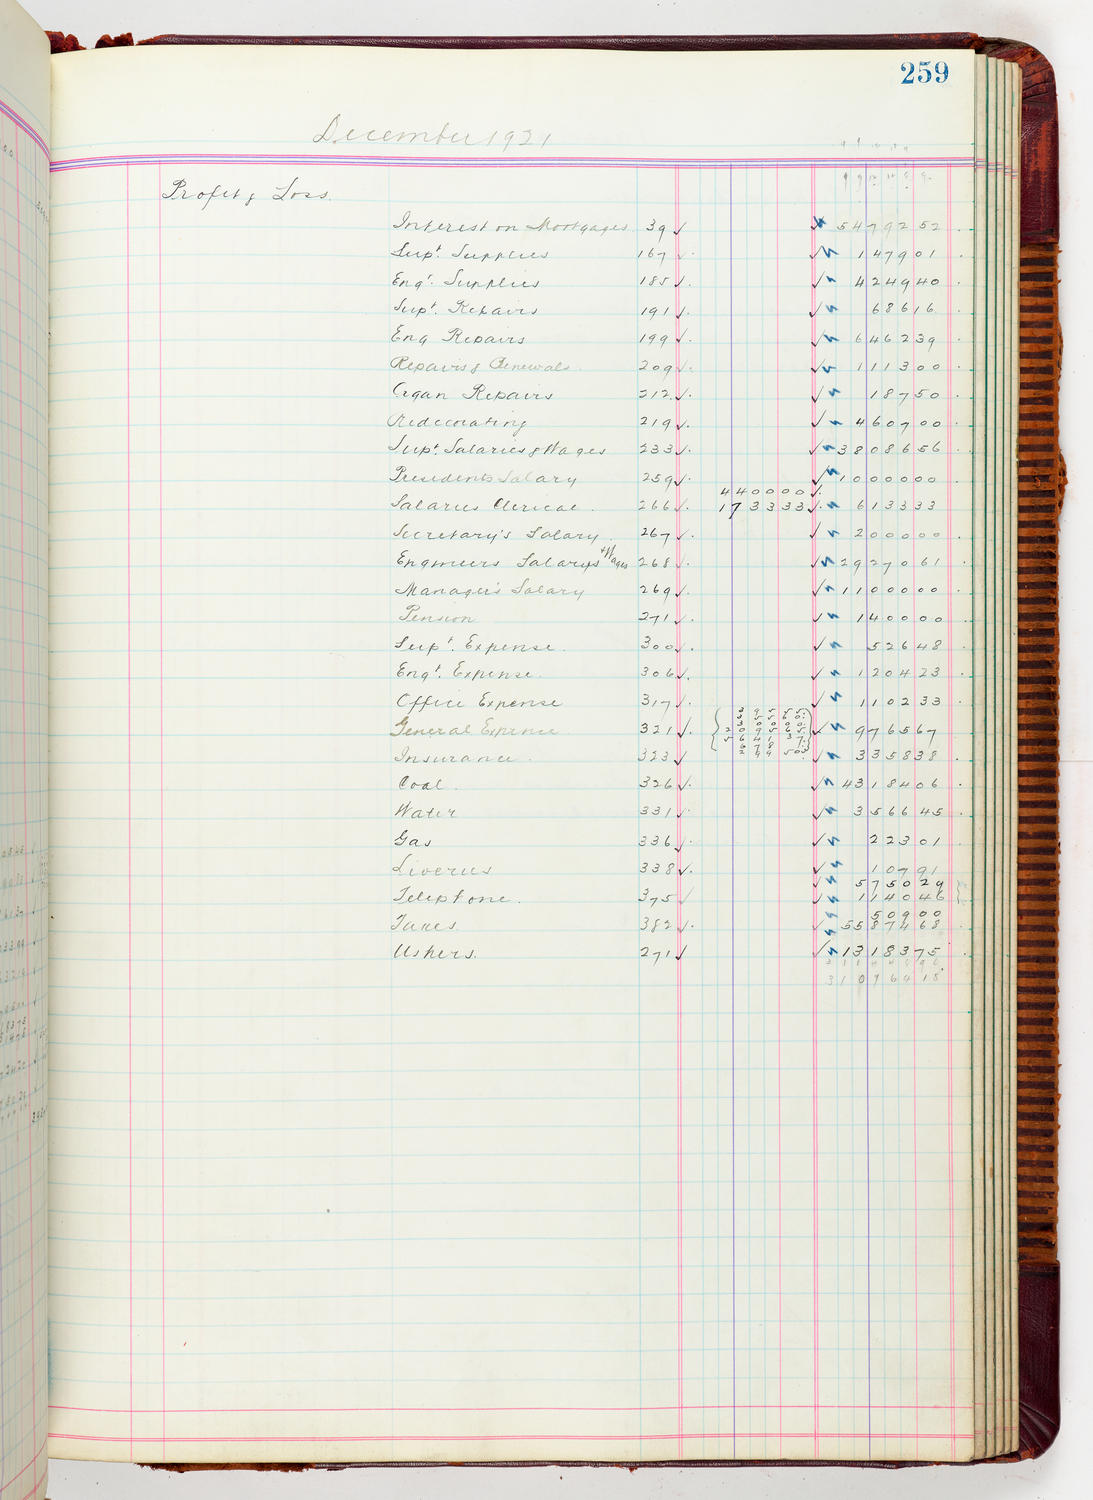 259
December 1921
Profit & Loss.
Interest on Mortgages 39 54792 52
Supt. Supplies 167 1479 01
Engr. Supplies 185 4249 40
Supt. Repairs 191 686 16
Eng Repairs 199 6462 39
Repairs & Renewals 209 1113 00
Organ Repairs 212 187 50
Redecorating 219 4607 00
Supt. Salaries & Wages 233 38086 56
Presidents Salary 259 10000 00
4400 00
Salaries Clerical 266 1733 33 6133 33
Secretary's Salary 267 2000 00
Engineers Salarys & Wages 268 29270 61
Manager's Salary 269 11000 00
Pension 271 1400 00
Supt. Expense 300 526 48
Engr. Expense 306 1204 23
Office Expense 317 1102 33
General Expense 321 9765 67
Insurance 323 3358 38
Coal 326 43184 06
Water 331 3566 45
Gas 336 223 01
Liveries 338 107 91
5750 29
Telephone 375 1140 46
509 00
Taxes 382 55874 68
Ushers. 271 13183 75
310964 18